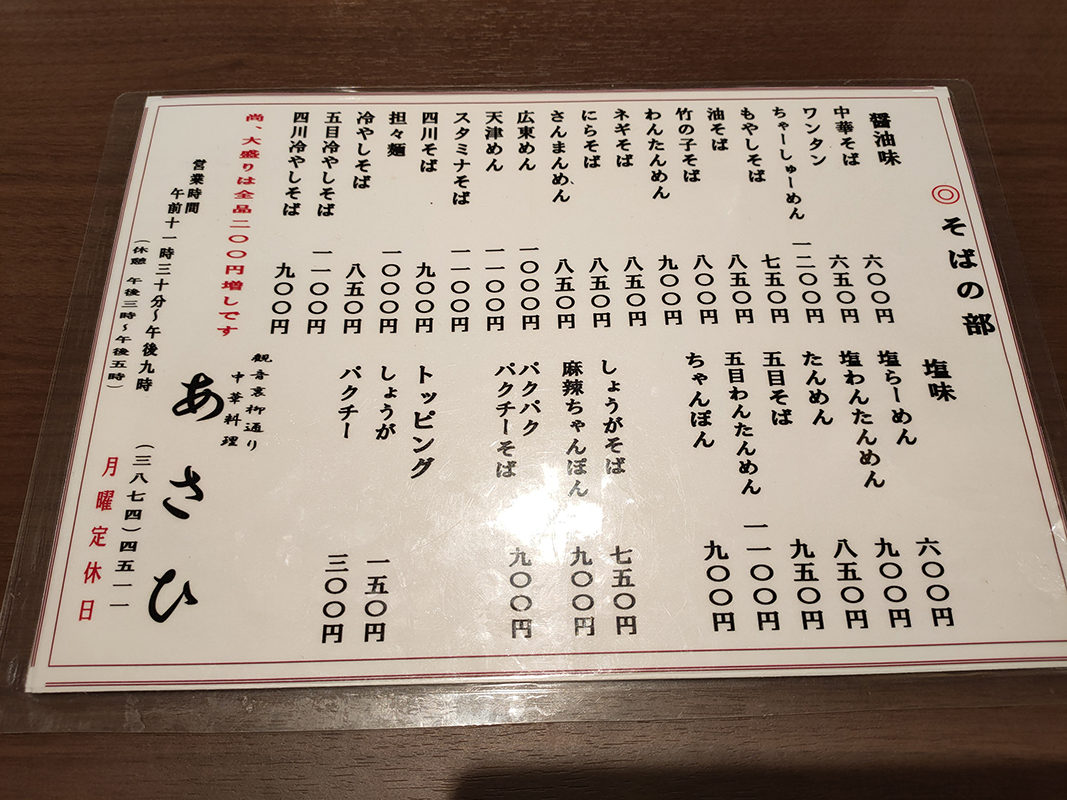 ◎そばの部
醤油味
中華そば 六〇〇円
ワンタン 六五〇円
ちゃーしゅーめん 一二〇〇円
もやしそば 七五〇円
油そば 八五〇円
竹の子そば 八〇〇円
わんたんめん 九〇〇円
ネギそば 八五〇円
にらそば 八五〇円
さんまんめん 八五〇円
広東めん 一〇〇〇円
天津めん 一一〇〇円
スタミナそば 一一〇〇円
四川そば 九〇〇円
担々麺 一〇〇〇円
冷やしそば 八五〇円
五目冷やしそば 一一〇〇円
四川冷やしそば 九〇〇円
塩味
塩らーめん 六〇〇円
塩わんたんめん 九〇〇円
たんめん 八五〇円
五目そば 九五〇円
五目わんたんめん 一一〇〇円
ちゃんぽん 九〇〇円
しょうがそば 七五〇円
麻辣ちゃんぽん 九〇〇円
パクパク
パクチーそば 九〇〇円
トッピング
しょうが 一五〇円
パクチー 三〇〇円
尚、大盛りは全品二〇〇円増しです
営業時間
午前十一時三十分～午後九時
（休憩 午後三時～午後五時）
観音裏柳通り
中華料理
あさひ
（三八七四）四五一一
月曜定休日